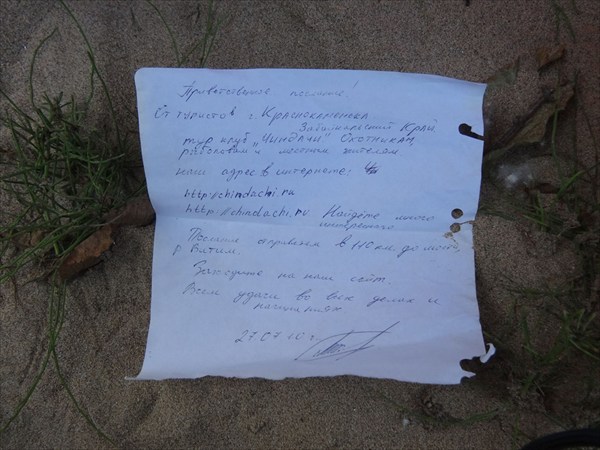 Приветственное послание!
От туристов г. Краснокаменска
Забайкальский Край
тур клуб "Чиндачи" Охотникам,
рыболовам и местным жителям
наш адрес в интернете:
http://chindachi.ru
http://chindachi.ru Найдёте много
интересного.
Послание отправлен в 110 км. до моста,
р. Витим.
Заходите на наш сайт
Всем удачи во всех делах и
начинаниях
27.07.10 г.